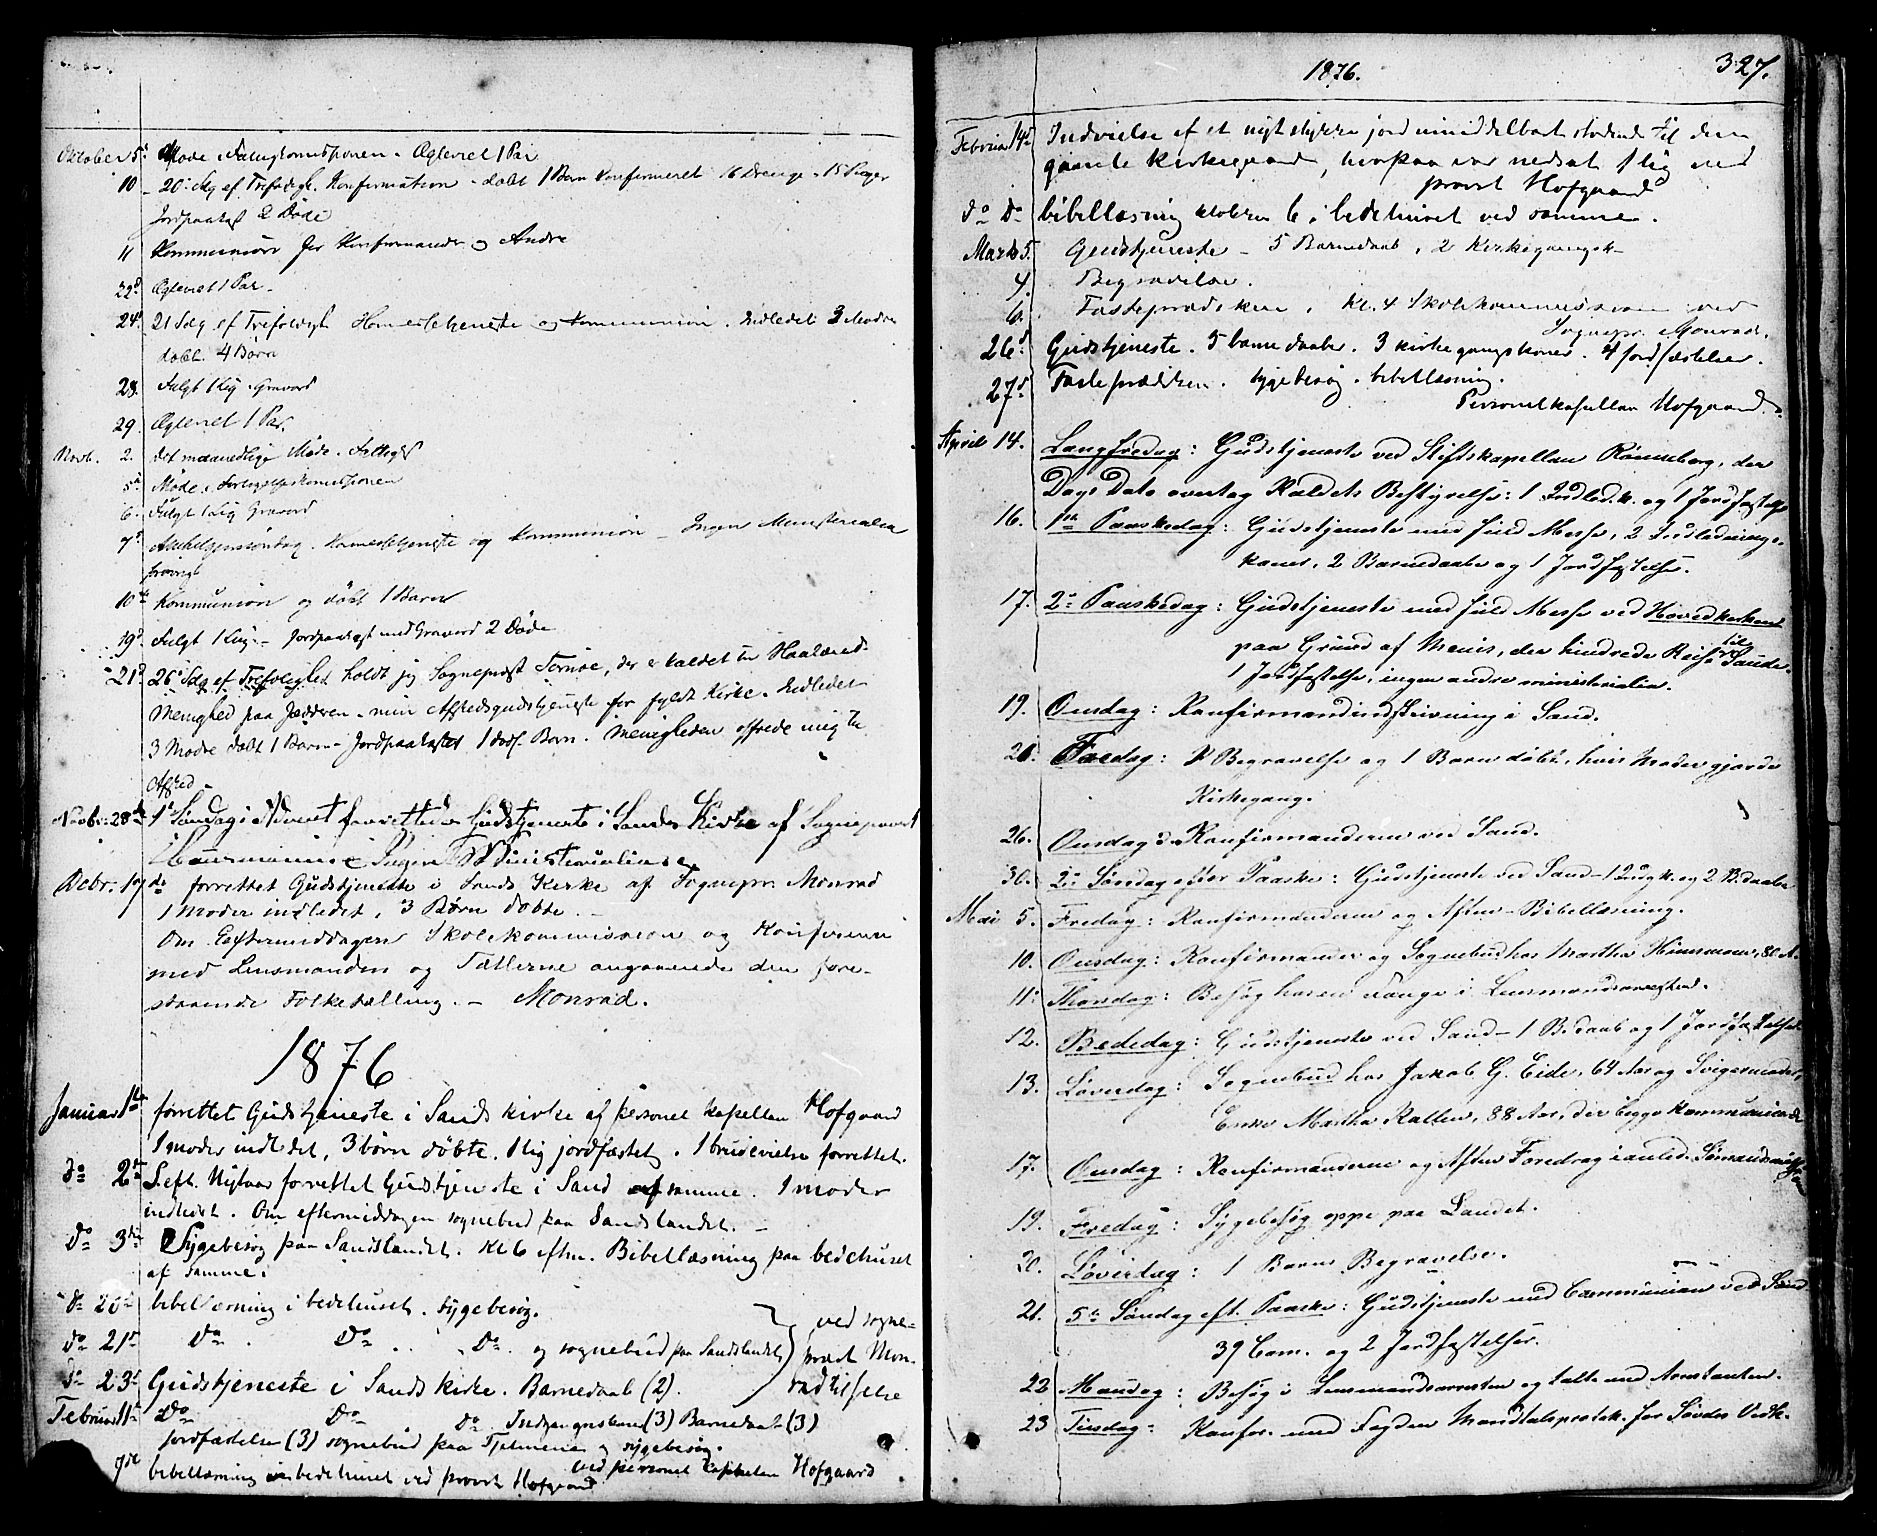 Oktober 5te Møde i Fattigkommissionen. Ægteviet 1 Par
10 - 20de Sdg ef Trefoldgh. Konfirmation - døbt 1 Barn Konfirmeret 16 Drenge - 15 Piger
Jordpaakast 2 Døde
11 Kommunion for Konfirmander og Andre
22d Ægteviet 1 Par -
24d 21 Sdg ef Trefoldgh Høimessetjeneste og Kommunion. Indledet 3 Mødre
døbt 4 Børn
28. Fulgt 1 Lig. Gravord
29. Ægteviet 1 Par.
Novb. 2. det maanedlige Møde i Fattigk
5te Møde i Forligelseskomissionen
6. Fulgt 1 Lig Gravord
7d Allehelgensøndag. Høimessetjeneste og Kommunion - Ingen Ministerialia
10de Kommunion og døbt 1 Barn
19d Fulgt 1 Lig - Jordpaakast med Gravord 2 Døde
21d 26de Sdg ef Trefoldighet holdt jeg Sogneprest Tornøe, der er kaldet til Haalands
Menighed paa Jædderen - min Afskedsgudstjeneste for fyldt Kirke. Indledet
3 Mødre døbt 1 Barn - Jordpaakastet 1 dødf. Barn. Menigheden offrede mig til
Afsked
Novbr. 28de 1ste Søndag i Advent forrettede Gudstjeneste i Sands Kirke af Sogneprest
Ingen Ministerialia
Debr. 19de forrettet Gudstjeneste i Sands Kirke af Sognepr. Monrad
1 Moder indledet, 3 Børn døbte. -
Om Eftermiddagen Skolekommission og Konference
med Lensmanden og Tællerne angaaende den fore-
staaende Folketælling. - Monrad.
1876
Januar 1ste forrettet Gudstjeneste i Sands kirke af personel kapellan Hofgaard
1 moder indledet, 3 børn døbte. 1 lig jordfæstet. 1 brudevielse forrettet.
do 2den S. eft. Nytaar forrettet Gudstjeneste i Sand af samme. 1 moder
indledet. Om eftermiddagen sognebud paa Sandslandet. -
do 3die Sygebesøg paa Sandslandet. Kl 6 eftm. Bibellæsning paa bedehuset
af samme.
do 20de bibellæsning i bedehuset. Sygebesøg.
do 21de do. do. do. og sognebud paa Sandslandet
ved sogne-
præst Mon-
rad tilfelse
do 23de Gudstjeneste i Sands kirke. Barnedaab (2).
Februar 11te do do do Indgangskoner (3) Barnedaab (3)
Jordfæstelser (3) sognebud paa og sygebesøg.
ved personel kapellan Hofgaard
bibellæsning i bedehuset ved provst Hofgaard
1876. 327.
Februar 14de Indvielse af et nyt stykke jord umiddelbart stødende til den
gamle kirkegaard, hvorpaa var nedsat 1 lig ved
provst Hofgaard
do do bibellæsning klokken 6 i bedehuset ved samme.
Marts 5. Gudstjeneste - 5 Barnedaab, 2 Kirkegangsk-
Begravelse.
6. Fasteprædiken, Kl. 4 Skolekommission ved
Sognepr. Monrad.
26d. Gudstjeneste. 5 barnedaaber. 3 kirkegangskoner. 4 jordfæstelser.
27d. Fasteprædiken. sygebesøg. bibellæsning.
Personelkapellan Hofgaard.
April 14. Langfredag: Gudstjeneste ved Stiftskapellan Rønneberg, der
Dags Dato overtog Kaldets Bestyrelse: 1 Indled.k. og 1 Jordfæstelse
16. 1ste Paaskedag: Gudstjeneste med fuld Messe, 2 Indlednings-
koner, 2 Barnedaabe og 1 Jordfæstelse.
17. 2den Paaskedag: Gudstjeneste med fuld Messe ved Hovedkirken
paa Grund af Menis, der hindrede Reise til Sande.
1 Jordfæstelse, ingen andre ministerialia.
19. Onsdag: Konfirmandindskrivning i Sand.
Fredag: 1 Begravelse og 1 Barn døbt, hvis Moder gjorde
Kirkegang.
26. Onsdag: Konfirmanderne ved Sand.
30. 2den Søndag efter Paaske: Gudstjeneste ved Sand - 1 Indg.k. og 2 B.daabe
Mai 5. Fredag: Konfirmanderne og Aften-Bibellæsning.
10. Onsdag: Konfirmander og Sognebud hos Martha 80 A.
11. Thorsdag: Besøg hos en Fange i Lensmandsarresten.
12. Bededag: Gudstjeneste ved Sand - 1 B.daab og 1 Jordfæstelse
13. Løverdag: Sognebud hos Jakob G. Eide, 64 Aar og Svigermoder,
Enke Martha 88 Aar, der begge kommunicerede
17. Onsdag: Konfirmanderne og Aften Foredrag i anled.
19. Fredag: Sygebesøg oppe paa Landet.
20. Løverdag: 1 Barns Begravelse.
21. 5te Søndag eft. Paaske: Gudstjeneste med Communion ved Sand
39 Com. og 2 Jordfæstelser.
22 Mandag: Besøg i Lensmandsarresten og talte med Arrestanten.
23 Tirsdag: Konfer. med Fogden Mandtalsprotok. for